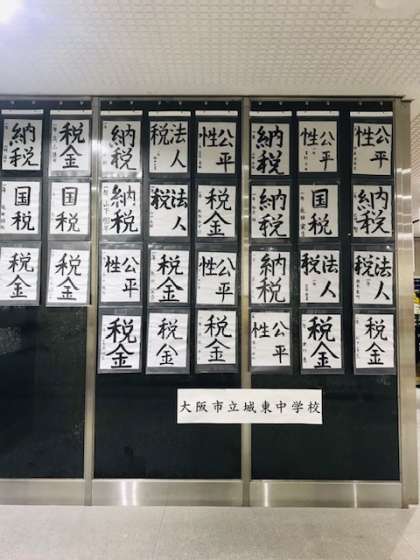 納税
税金
納税
法人税
公平性
納税
公平性
公平性
国税
国税
納税
法人税
税金
納税
国税
納税
税金
税金
公平性
税金
公平性
納税
法人税
法人税
税金
税金
税金
公平性
税金
税金
大阪市立城東中学校